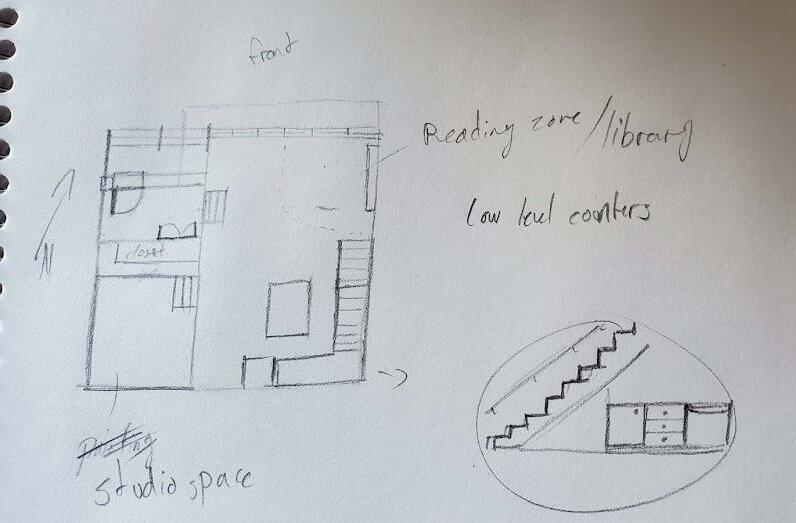 front
Reading zone/library
low level counters
N
closet
Painting
studio space